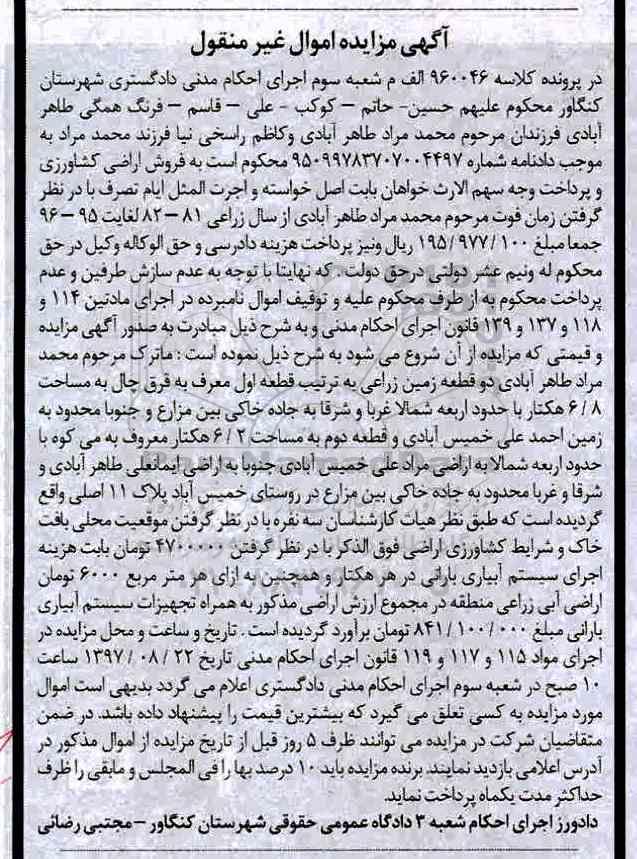 آگهی مزایده اموال غیر منقول
در پرونده کلاسه ۹۶۰۰۴۶ الف م شعبه سوم اجرای احکام مدنی دادگستری شهرستان
کنگاور محکوم علیهم حسین- حاتم – کوکب - علی – قاسم – فرنگ همگی طاهر
آبادی فرزندان مرحوم محمد مراد طاهر آبادی وکاظم راسخی نیا فرزند محمد مراد به
موجب دادنامه شماره ۹۵۰۹۹۷۸۳۷۰۷۰۰۴۴۹۷ محکوم است به فروش اراضی کشاورزی
و پرداخت وجه سهم الارث خواهان بابت اصل خواسته و اجرت المثل ایام تصرف با در نظر
گرفتن زمان فوت مرحوم محمد مراد طاهر آبادی از سال زراعی ۸۱ – ۸۲ لغایت ۹۵ – ۹۶
جمعا مبلغ ۱۹۵/۹۷۷/۱۰۰ ریال ونیز پرداخت هزینه دادرسی و حق الوکاله وکیل در حق
محکوم له ونیم عشر دولتی درحق دولت . که نهایتا با توجه به عدم سازش طرفین و عدم
پرداخت محکوم به از طرف محکوم علیه و توقیف اموال نامبرده در اجرای مادتین ۱۱۴ و
۱۱۸ و ۱۳۷ و ۱۳۹ قانون اجرای احکام مدنی و به شرح ذیل مبادرت به صدور آگهی مزایده
و قیمتی که مزایده از آن شروع می شود به شرح ذیل نموده است : ماترک مرحوم محمد
مراد طاهر آبادی دو قطعه زمین زراعی به ترتیب قطعه اول معرف به قرق جال به مساحت
۶/۸ هکتار با حدود اربعه شمالا غربا و شرقا به جاده خاکی بین مزارع و جنوبا محدود به
زمین احمد علی خمیس آبادی و قطعه دوم به مساحت ۶/۲ هکتار معروف به می کوه با
حدود اربعه شمالا به اراضی مراد علی خمیس آبادی جنوبا به اراضی ایمانعلی طاهر آبادی و
شرقا و غربا محدود به جاده خاکی بین مزارع در روستای خمیس آباد پلاک ۱۱ اصلی واقع
گردیده است که طبق نظر هیات کارشناسان سه نفره با در نظر گرفتن موقعیت محلی بافت
خاک و شرایط کشاورزی اراضی فوق الذکر با در نظر گرفتن ۴۷۰۰۰۰۰ تومان بابت هزینه
اجرای سیستم آبیاری بارانی در هر هکتار و همچنین به ازای هر متر مربع ۶۰۰۰ تومان
اراضی آبی زراعی منطقه در مجموع ارزش اراضی مذکور به همراه تجهیزات سیستم آبیاری
بارانی مبلغ ۸۴۱/۱۰۰/۰۰۰ تومان برآورد گردیده است . تاریخ و ساعت و محل مزایده در
اجرای مواد ۱۱۵ و ۱۱۷ و ۱۱۹ قانون اجرای احکام مدنی تاریخ ۲۲ / ۰۸ / ۱۳۹۷ ساعت
۱۰ صبح در شعبه سوم اجرای احکام مدنی دادگستری اعلام می گردد بدیهی است اموال
مورد مزایده به کسی تعلق می گیرد که بیشترین قیمت را پیشنهاد داده باشد. در ضمن
متقاضیان شرکت در مزایده می توانند ظرف ۵ روز قبل از تاریخ مزایده از اموال مذکور در
آدرس اعلامی بازدید نمایند. برنده مزایده باید ۱۰ درصد بها را فی المجلس و مابقی را ظرف
حداکثر مدت یکماه پرداخت نماید.
دادورز اجرای احکام شعبه ۳ دادگاه عمومی حقوقی شهرستان کنگاور – مجتبی رضائی